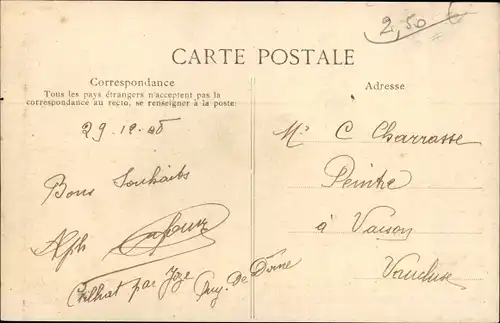 2,50
CARTE POSTALE
Correspondance
Tous les pays étrangers n'acceptent pas la
correspondance au recto, se renseigner à la poste
29.12.08
Bons Souhaits
Alph
par Joze Puy. De Dome
Adresse
Mr C Charrasse
Peintre
à Vaison
Vaucluse